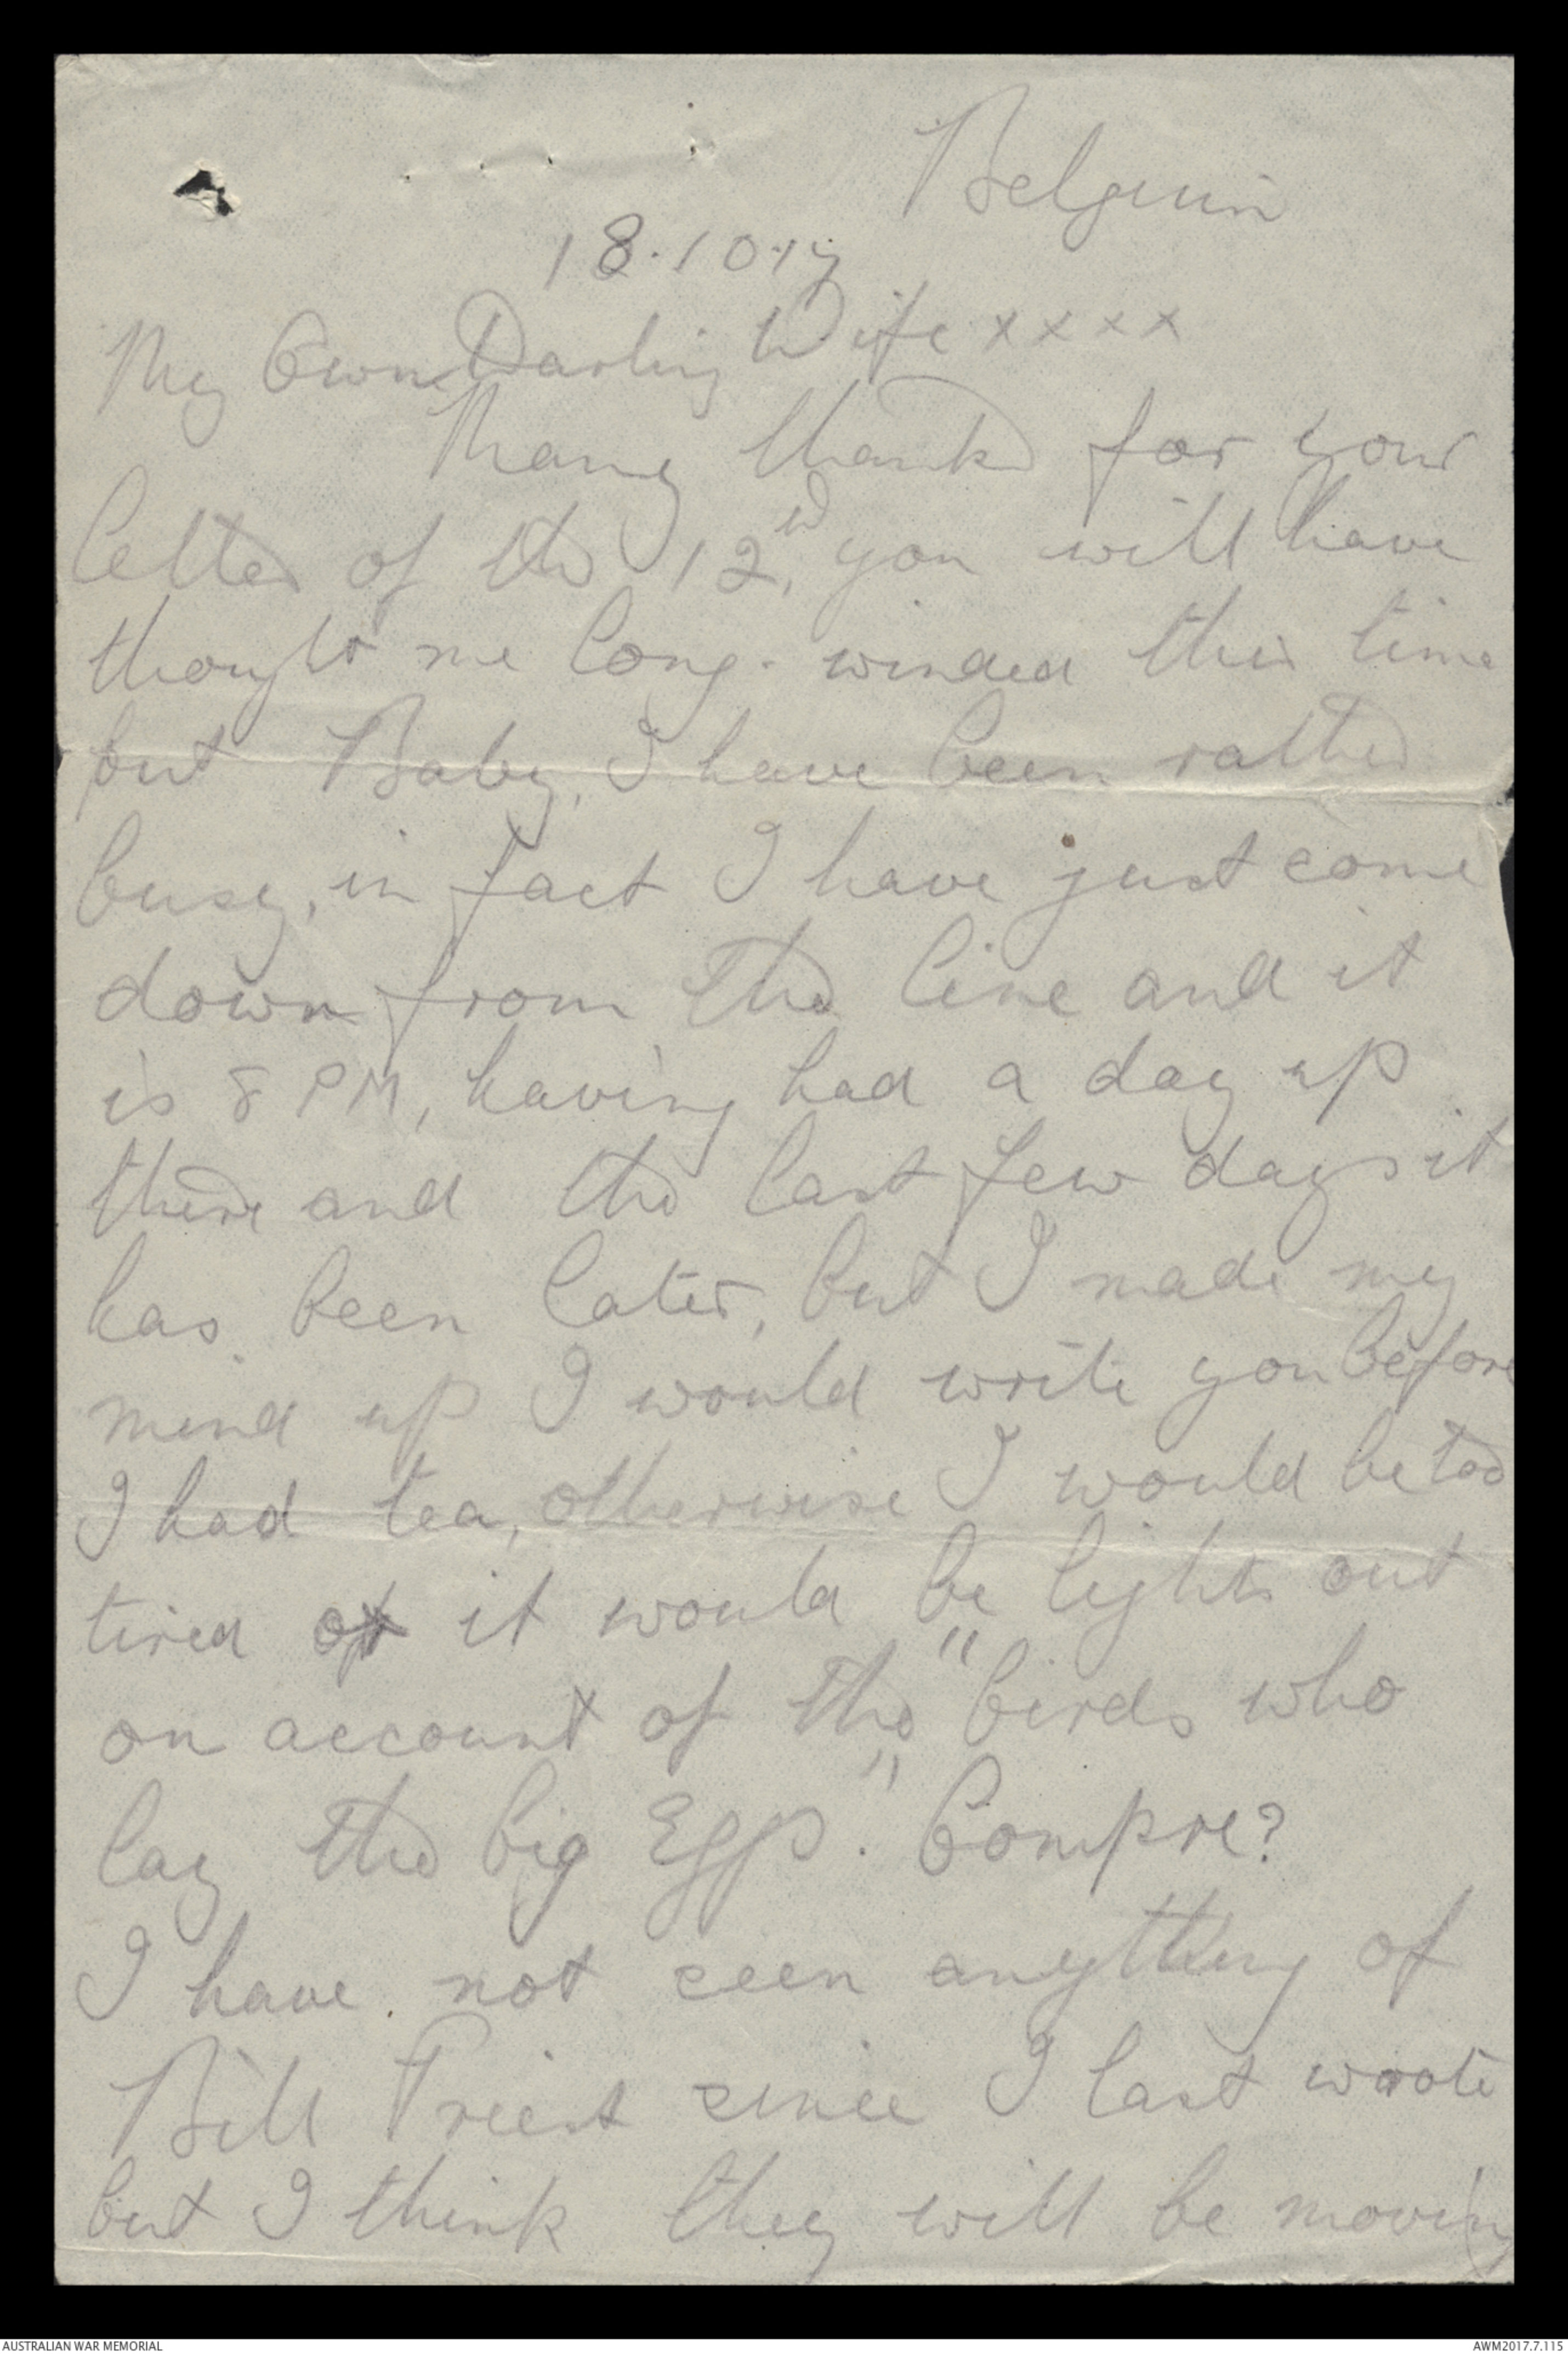 Belguim
18.10.17
My Own Darling Wife xxxx
Many thanks for your
letter of the 12th, you will have
thought me long-winded this time
but Baby, I have been rather
busy, in fact I have just come
down from the line and it
is 8 PM, having had a day up
there and the last few days it
has been later, but I made my
mind up I would write you before
I had tea, otherwise I would be too
tired or it would be lights out
on account of the "birds who
lay the big Eggs." Compre?
I have not seen anything of
Bill Priest since I last wrote
but I think they will be moving
AUSTRALIAN WAR MEMORIAL
AWM2017.7.115